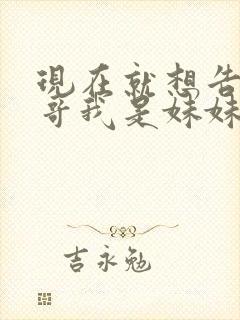 現在就想告
哥我是妹妹
吉永勉